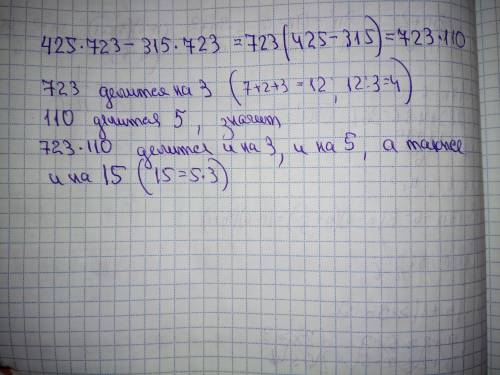 425·723 - 315·723 = 723(425 - 315) = 723·110
723 делится на 3 (7+2+3 = 12; 12:3=4)
110 делится 5, значит
723·110 делится и на 3, и на 5, а также
и на 15 (15=5·3)